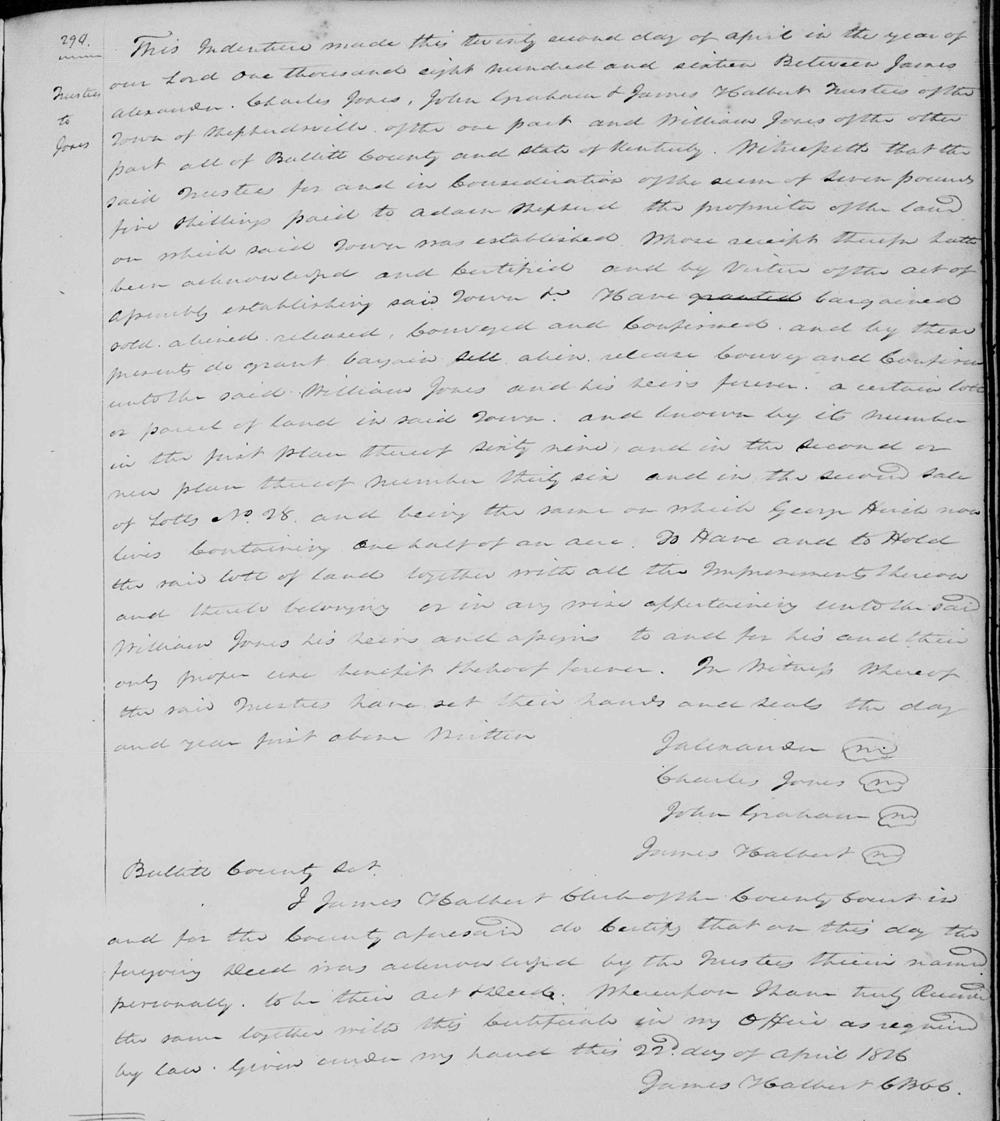 298.
Trustees
to
Jones
This Indenture made this twenty second day of april in the year of
our Lord One thousand eight hundred and sixteen Between James
Alexander. Charles Jones, John Graham & James Halbert Trustees of the
Town of Shepherdsville of the one part and William Jones of the other
part all of Bullitt County and State of Kentucky. Witnesseth that the
said Trustees for and in Consideration of the sum of Seven pounds
five shillings paid to Adam Shepherd the proprietor of the land
on which said Town was established Whose receipt therefor hath
been acknowledged and Certified and by Virtue of the act of
assembly establishing said Town &c Have granted bargained
sold. aliened. released, Conveyed and Confirmed. and by these
presents do grant bargain sell alien release Convey and Confirm
unto the said William Jones and his heirs forever. a certain lott
or parcel of land in said Town. and known by its number
in the first plan thereof sixty nine, and in the second or
new plan thereof number thirty six and in the second sale
of Lotts No. 28. and being the same on which George Hirch now
lives Containing One half of an acre. To Have and to Hold
the said lott of land together with all the Improvements thereon
and thereto belonging or in any wise appertaining unto the said
William Jones his heirs and assigns to and for his and their
only proper use benefit & behoof forever. In Witness Whereof
the said Trustees have set their hands and seals the day
and year first above Written
J Alexander
Charles Jones
John Graham
James Halbert
Bullitt County Sct.
I James Halbert Clerk of the County Court in
and for the County aforesaid do Certify that on this day the
foregoing Deed was acknowledged by the Trustees therein named
personally. to be their act & Deed. Whereupon I have truly Recorded
the same together with this Certificate in my Office as required
by law. Given under my hand this 22d. day of April 1816
James Halbert CBCC.